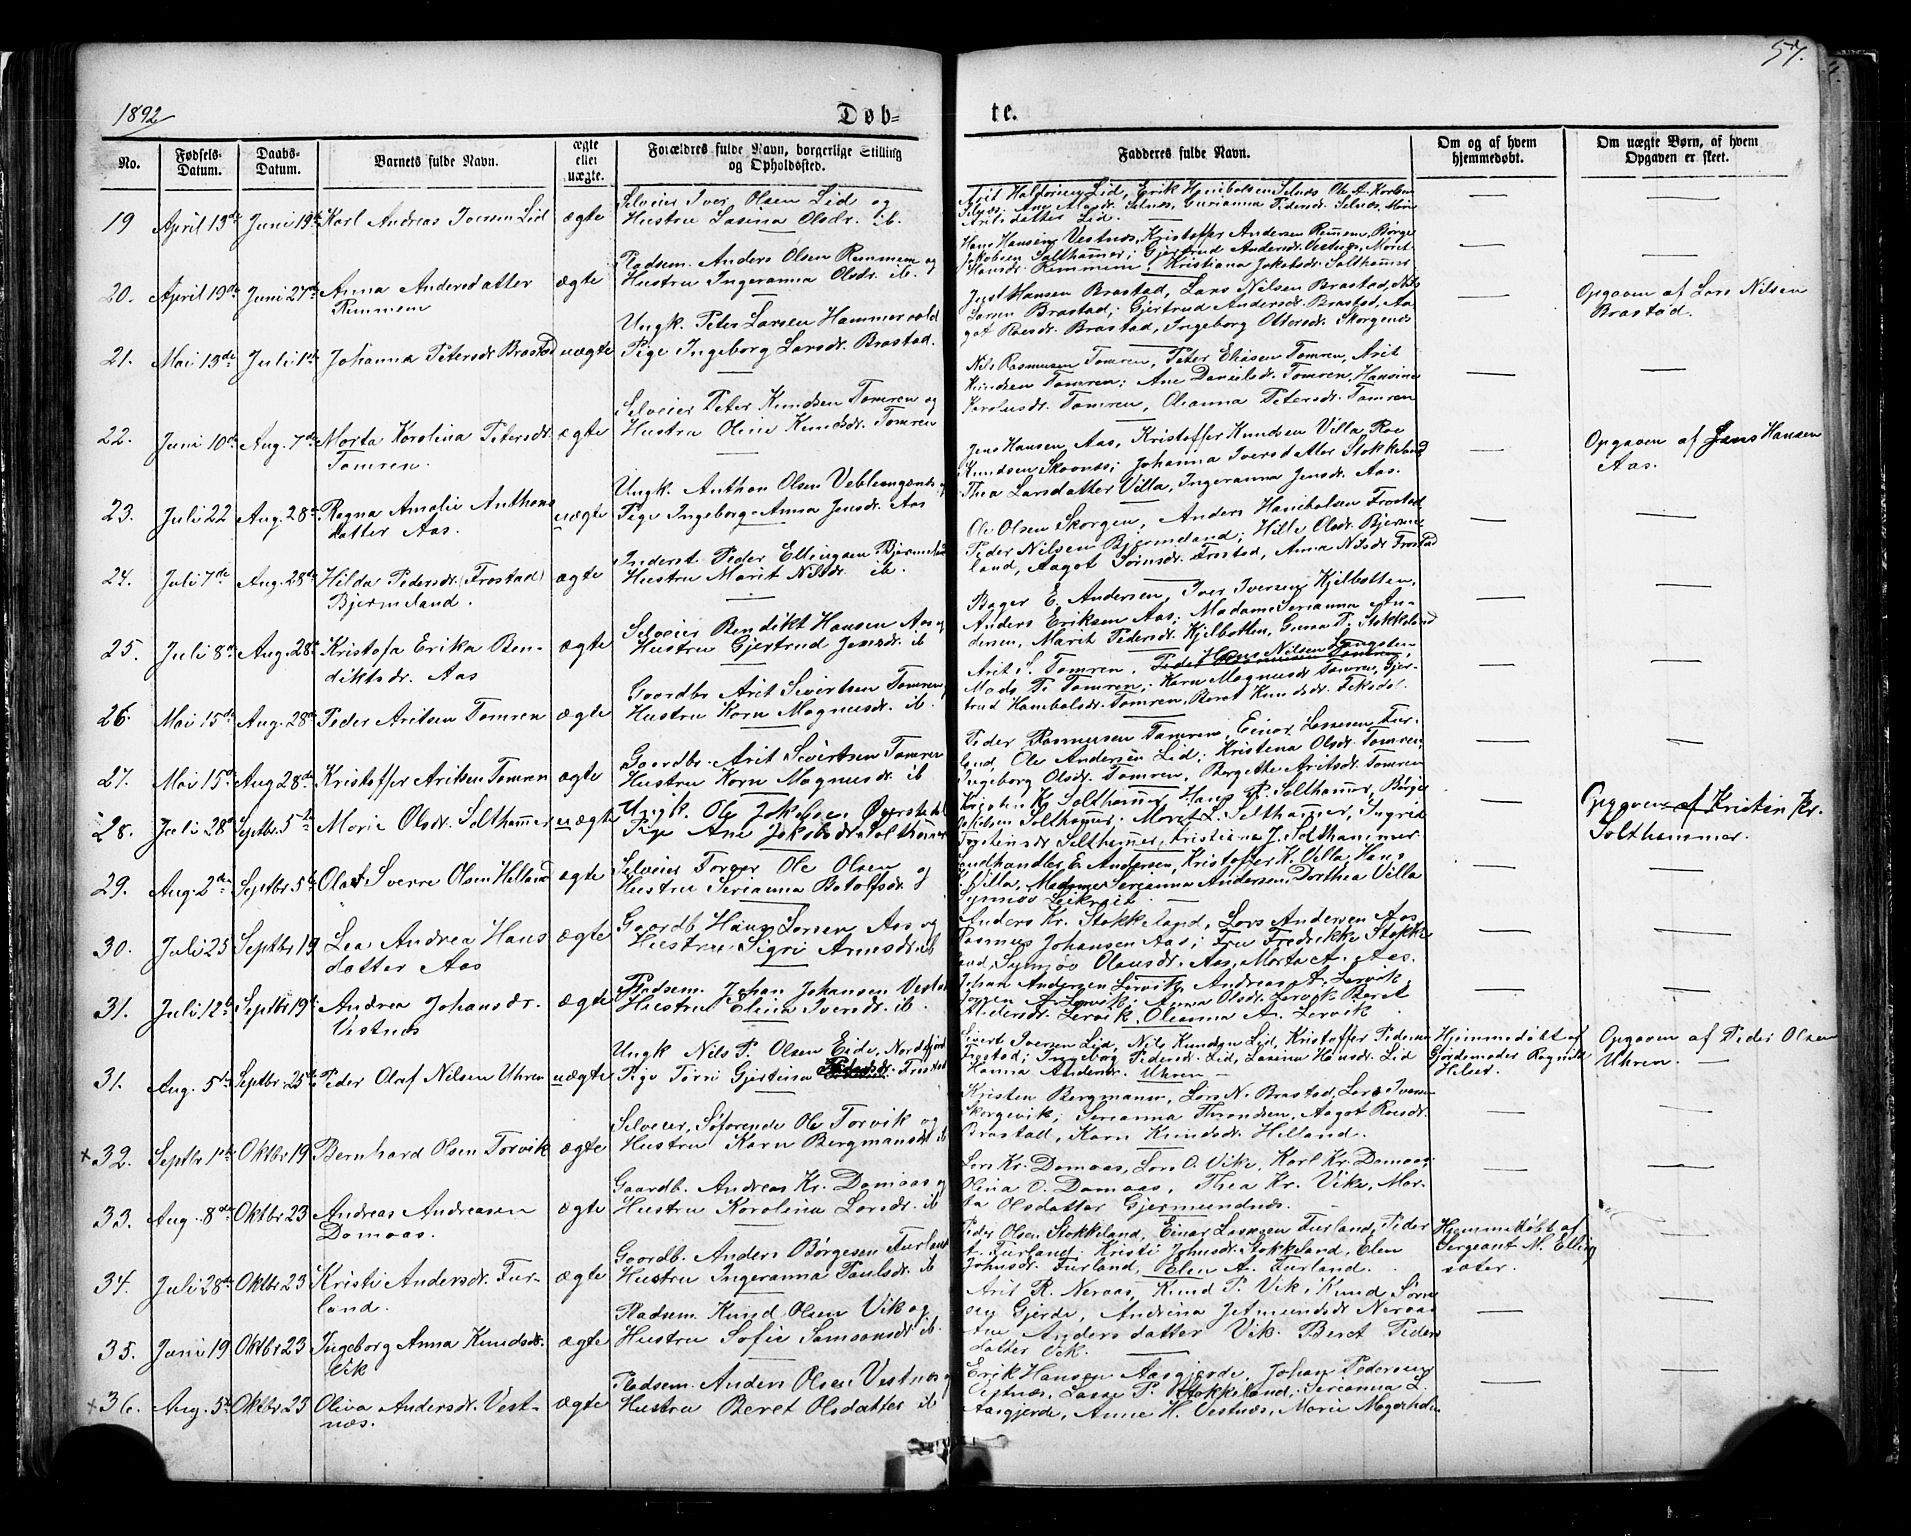 57.
1892
Døb-
te.
No.
Fødsels-
Datum.
Daabs-
Datum.
Barnets fulde Navn.
ægte
eller
uægte.
Forældres fulde Navn, borgerlige Stilling
og Opholdssted.
Fadderes fulde Navn.
Om og af hvem
hjemmedøbt.
Om uægte Børn, af hvem
Opgaven er skeet.
19 April 13de Juni 19de Karl Andreas Iversen Lid ægte
Selveier Iver Olsen Lid og
Hustru Lasina Olsdr. ib.
Arit Haldorsen Lid, Erik Hanibalsen Selnes, Ole A.
Selnes, Ane Madsdr. Selnes, Gurianna Pedersdr. Selnes,
Aritsdatter Lid.
20. April 19de Juni 27de Anna Andersdatter
Remmem
ægte
Pladsem. Anders Olsen Remmem og
Hustru Ingeranna Olsdr. ib.
Hans Hansen Vestnæs, Kristoffer Andersen Remmem, Børge
Jakobsen Solthammer; Gjertrud Andersdr. Vestnæs, Marit
Hansdr. Remmem, Kristiana Jakobsdr. Solthammer
21. Mai 13de Juli 1ste Johanna Petersdr. Brastad uægte
Ungk. Peter Larsen Hammervold
Pige Ingeborg Larsdr. Brastad.
Just Hansen Brastad, Lars Nilsen Brastad, Nils
Larsen Brastad; Gjertrud Andersdr. Brastad, Aa-
got Roesdr. Brastad, Ingeborg Ottersdr. Skorgenes
Opgaven af Lars Nilsen
Brastad.
22. Juni 10de Aug. 7de Marta Karolina Petersdr.
Tomren.
ægte
Selveier Peter Knudsen Tomren og
Hustru Oline Knudsdr. Tomren
Nils Rasmusen Tomren, Peter Eliasen Tomren, Arit
Knudsen Tomren; Ane Danielsdr. Tomren, Hansine
Karolusdr. Tomren, Oleanna Petersdr. Tomren
23. Juli 22 Aug. 28de Ragna Amalie Anthons
datter Aas.
uægte
Ungk. Anthon Olsen Veblungsnæs og
Pige Ingeborg-Anna Jensdr. Aas
Jens Hansen Aas, Kristoffer Knudsen Villa, Roe
Knudsen Skovnæs; Johanna Iversdatter Stokkeland
Thea Larsdatter Villa, Ingeranna Jensdr. Aas.
Opgaven af Jens Hansen
Aas.
24. Juli 7de Aug. 28de Hilda Pedersdr. (Frostad)
Bjermeland.
ægte
Inderst Peder Ellingsen Bjermeland
Hustru Marit Nilsdr. ib.
Ole Olsen Skorgen, Anders Hanibalsen Frostad
Peder Nilsen Bjermeland; Hille Olsdr. Bjerme-
land, Aagot Tørrisdr. Frostad, Anna Nilsdr. Frostad
25. Juli 8de Aug. 28de Kristofa Erika Ben-
diktsdr. Aas
ægte
Selveier Bendikt Hansen Aas og
Hustru Gjertrud Jensdr. ib
Bager E. Andersen, Iver Iversen Kjelbotten,
Anders Eriksen Aas; Madam Serianna An-
dersen, Marit Pedersdr. Kjelbotten, Gurua P. Stokkeland
26. Mai 15de Aug. 28de Peder Aritsen Tomren ægte
Gaardbr. Arit Sivertsen Tomren,
Hustru Karn Magnusdr. ib.
Arit S. Tomren, Hans Nilsen Langsten
Mads P. Tomren; Karn Magnusdr. Tomren, Gjer-
trud Hanibalsdr. Tomren, Beret Knudsdr. Fiksdal.
27. Mai 15de Aug 28de Kristoffer Aritsen Tomren ægte
Gaardbr. Arit Sivertsen Tomren
Hustru Karn Magnusdr. ib
Peder Rasmusen Tomren, Einar Lassesen Fur-
land, Ole Andersen Lid; Kristena Olsdr. Tomren,
Ingeborg Olsdr. Tomren, Bergitte Aritsdr. Tomren
28. Juli 28de Septbr. 5de Marie Olsdr. Solthammer uægte
Ungk. Ole Jakobsen
Pige Ane Jakobsdr. Solthammer
Kristen K. Solthammer, Hans P. Solthammer, Børge
Jakobsen Solthamer; Marit L. Solthammer, Ingrid
Solthammer, Kristiana J. Solthammer.
Opgaven af Kristen Kr.
Solthammer.
29. Aug. 2de Septbr 5te Olaf Sverre Olsen Helland ægte
Selveier Torger Ole Olsen og
Hustru Serianna Botolfsdr.
Landhandler E. Andersen, Kristoffer K. Villa, Hans
Villa, Madame Serianna Andersen, Dorthea Villa
Synnøv
30. Juli 25 Septbr 19 Lea Andrea Hans
datter Aas
ægte
Gaardb. Hans Larsen Aas og
Hustru Sigri Arnesdr. ib
Anders Kr. Stokkeland, Lars Andersen Aas
Rasmus Johansen Aas; Fru Fredrikke Stokke-
land, Synnøv Olausdr. Aas, Marta A. Aas.
31. Juli 12te Septbr 19de Andrea Johansdr.
Vestnæs
ægte
Pladsem. Johan Johansen Vestnæs
Hustru Elina Iversdr. ib.
Johan Andersen Lervik, Andreas A. Lervik,
Jørgen A. Lervik; Anna Olsdr. Lervik Beret
Pedersdr. Lervik, Oleanna A. Lervik
31. Aug. 5te Septbr 25de Peder Olaf Nilsen Uhren uægte
Ungk Nils P. Olsen Eide, Nordfjord
Pige Tørri Gjertina Frostad
Sivert Iversen Lid, Nils Knudsen Lid, Kristoffer Pedersen
Frostad; Ingeborg Pedersdr. Lid, Lasina Hansdr. Lid
Hanna Andersdr. Uhren
Hjemmedøbt af
Gjordemoder Ragnild
Helset.
Opgaven af Peder Olsen
Uhren.
+ 32. Septbr 1ste Oktbr 19 Bernhard Olsen Torvik ægte
Selveier, Søfarende Ole Torvik og
Hustru Karn Bergmansdr. ib
Kristen Bergmann, Lars N. Brastad, Lars Iversen
Skorgevik; Serianna Throndsen, Aagot Roesdr.
Brastad, Karn Knudsdr. Helland.
33. Aug. 8de Oktbr 23 Andreas Andreasen
Damaas.
ægte
Gaardb. Andreas Kr. Damaas og
Hustru Karolina Larsdr. ib
Lars Kr. Damaas, Lars O. Vike, Karl Kr. Damaas;
Olina O. Damaas, Thea Kr. Vike, Mar-
ta Olsdatter Gjermundnæs.
34. Juli 28de Oktbr 23 Kristi Andersdr. Fur-
land.
ægte
Gaardb. Anders Børgesen Furland
Hustru Ingeranna Paulsdr. ib
Peder Olsen Stokkeland, Einar Lassesen Furland, Peder
A. Furland; Kristi Johnsdr. Stokkeland, Elen
Johnsdr. Furland, Elen A. Furland.
Hjemmedøbt af
Sergeant M. Elling
sæter.
35. Juni 19 Oktbr 23 Ingeborg Anna Knudsdr.
Vik
ægte
Pladsem. Knud Olsen Vik og
Hustru Sofie Samsonsdr. ib.
Arit R. Neraas, Knud P. Vik, Knud Sørn-
sen Gjerde, Andrina Jetmundsdr Neraas
Ane Andersdatter Vik. Beret Peders
datter Vik.
+ 36. Aug. 5te Oktbr 23 Oliva Andersdr. Vest-
næs.
ægte
Pladsem. Anders Olsen Vestnæs og
Hustru Beret Olsdatter ib
Erik Hansen Aasgjerde, Johan Pedersen
Vestnæs, Lasse P. Stokkeland; Serianna L.
Aasgjerde, Anne H. Vestnæs, Marie